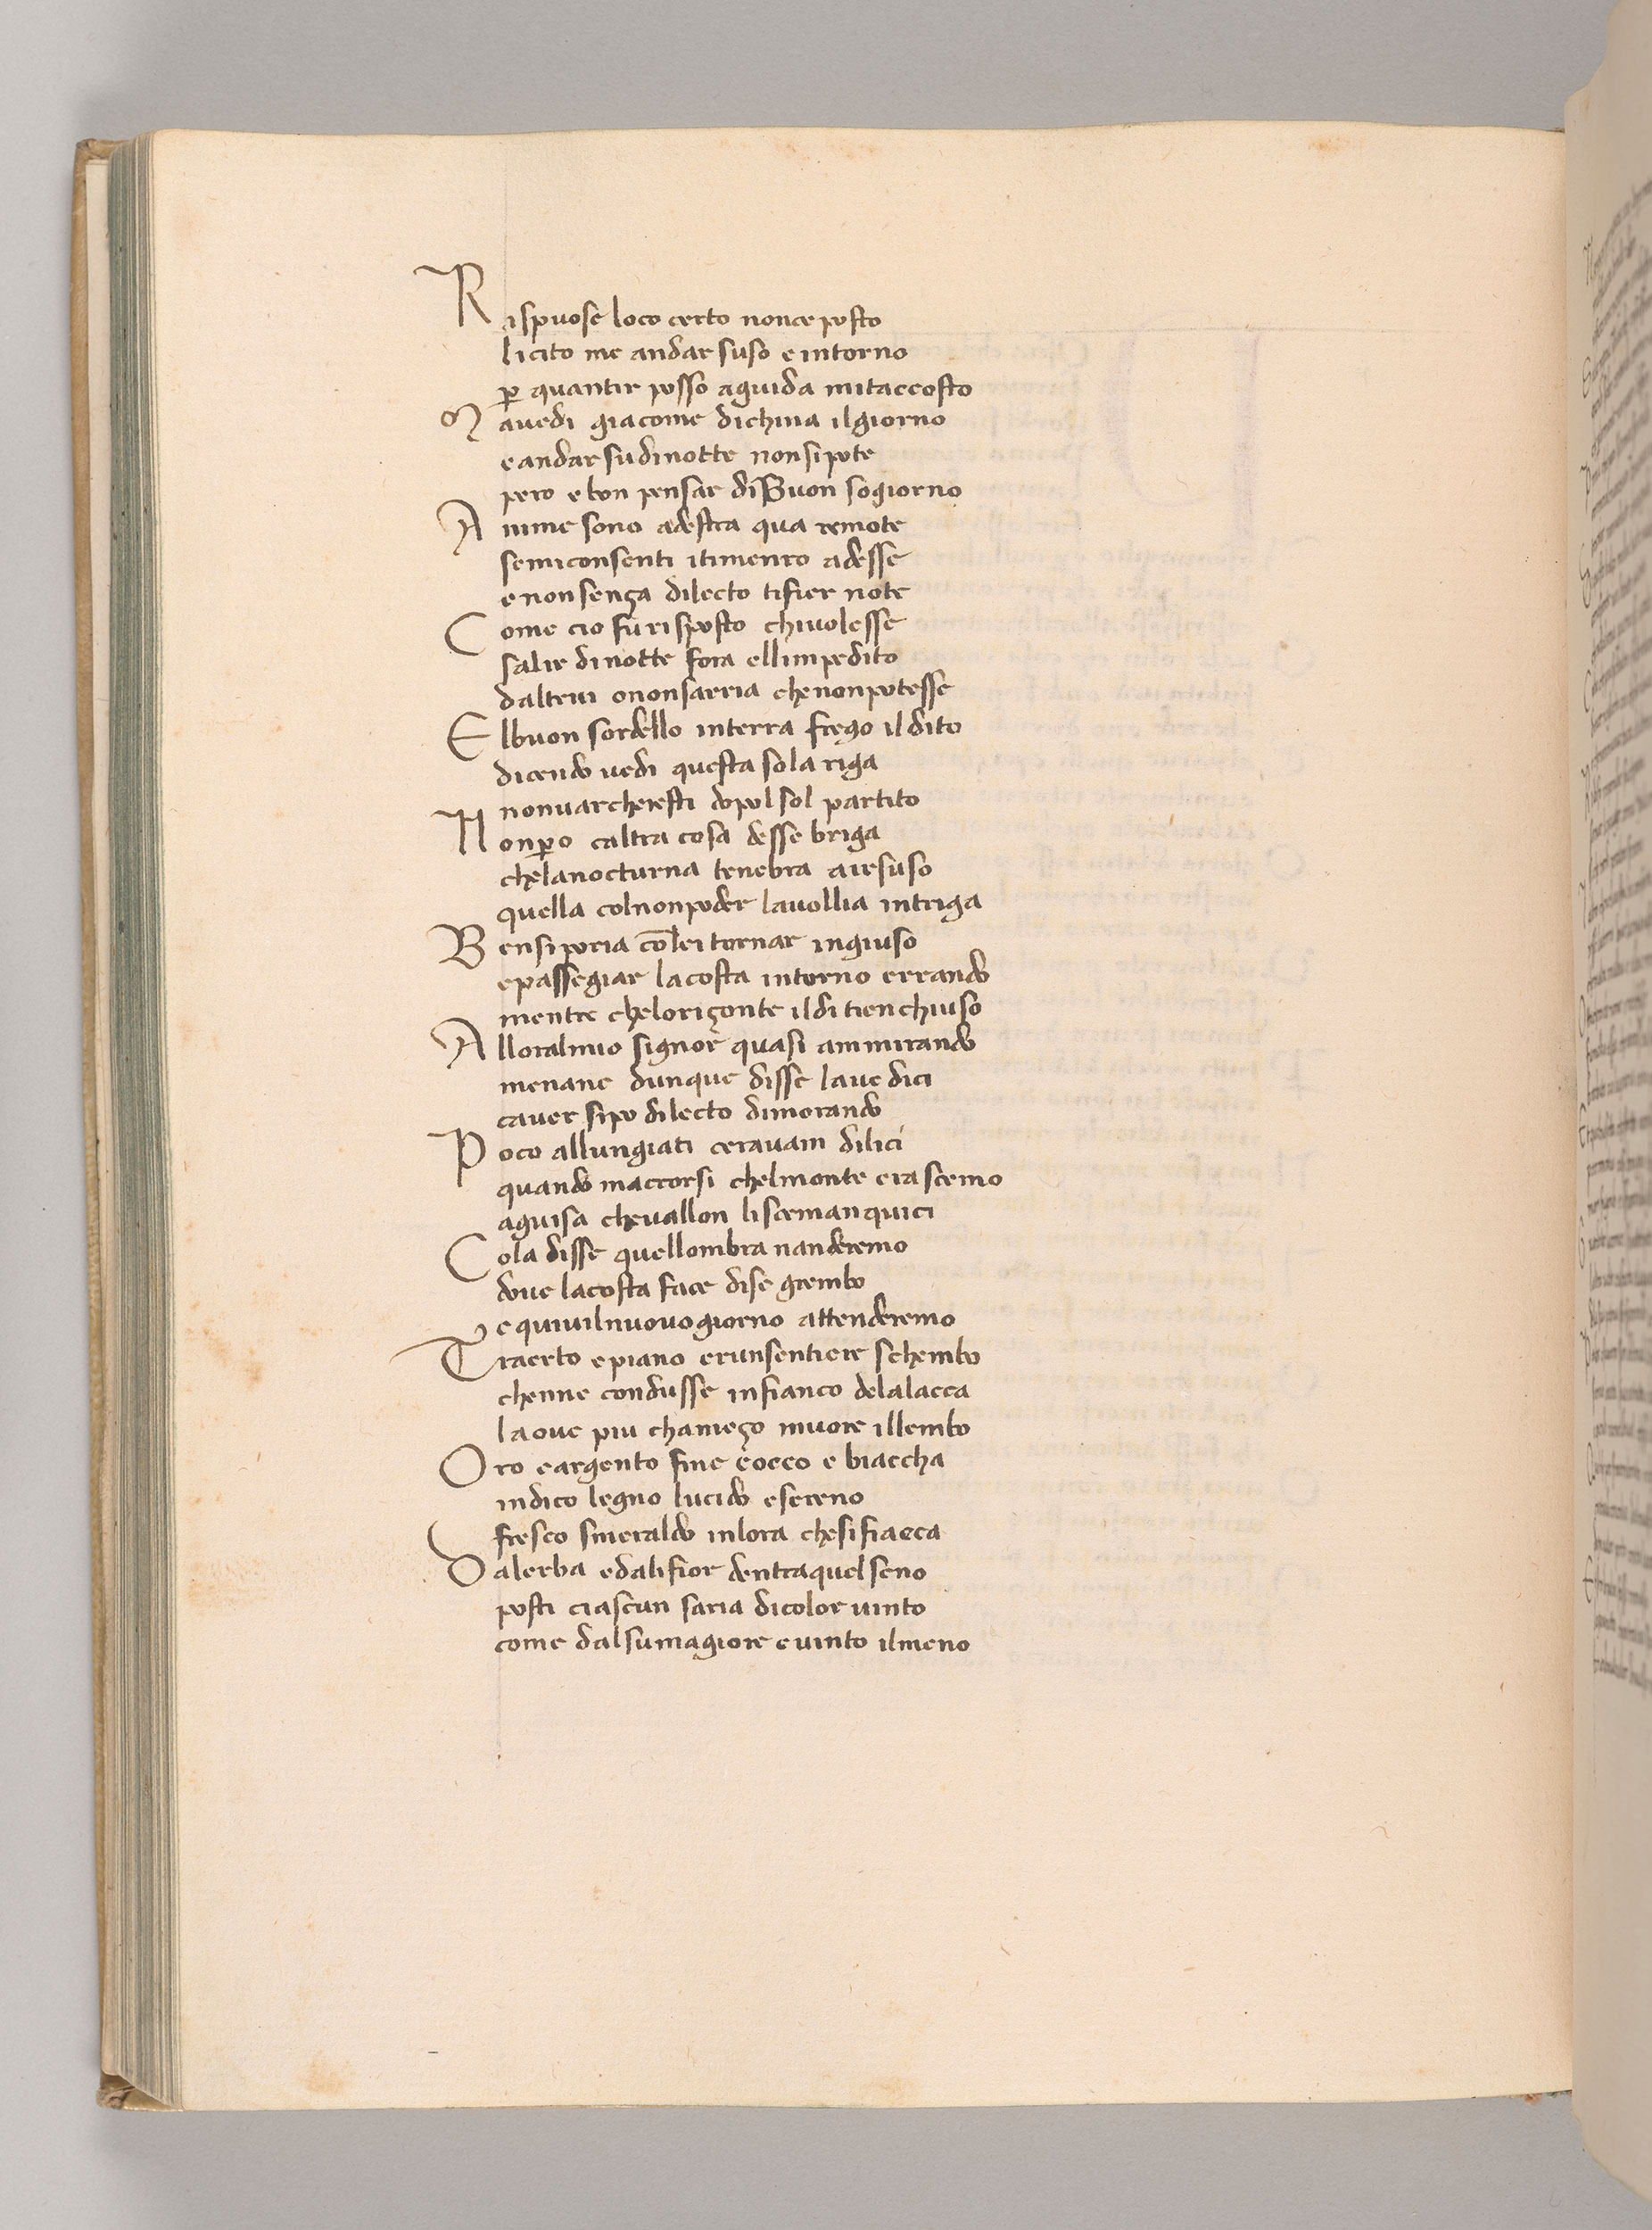 Rispuose loco certo nonce posto
licito me andar suso e intorno
p̱ quantir posso aguida mitaccosto
Mauedi giacome dichina ilgiorno
eandar sudinotte nonsipote
pero e bon pensar di Buon sogiorno
Anime sono adestra qua remote
semiconsenti itimenro adesse
enonsença dilecto tifier note
Come cio fu risposto chiuolesse
salir dinotte fora ellimpedito
daltrui ononsarria chenonpotesse
Elbuon sordello interra frego il dito
dicendo uedi questa sola riga
nonuarcheresti dopol sol partito
Nonp̱o caltra cosa desse briga
chelanocturna tenebra airsuso
quella colnonpoder lauollia intriga
Bensiporia cōlei tornar ingiuso
epassegiar lacosta intorno errando
mentre cheloriçonte ildi tien chiuso
Alloralmio signor quasi ammirando
menane dunque disse laue dici
cauer sipo dilecto dimorando
Poco allungiati cerauam dilici
quando maccorsi chelmonte era scemo
aguisa cheuallon liscemanquici
Cola disse quellombra nanderemo
doue lacosta face dise grembo
equiuilnuouogiorno attenderemo
Traerto epiano erunsentiere schembo
chenne condusse infianco delalacca
laoue piu chameço muore illembo
Oro eargento fine cocco e biaccha
indico legno lucido esereno
fresco smeraldo inlora chesifiacca
Dalerba edalifior dentraquelseno
posti ciascun saria dicolor uinto
come dalsumagiore e uinto ilmeno